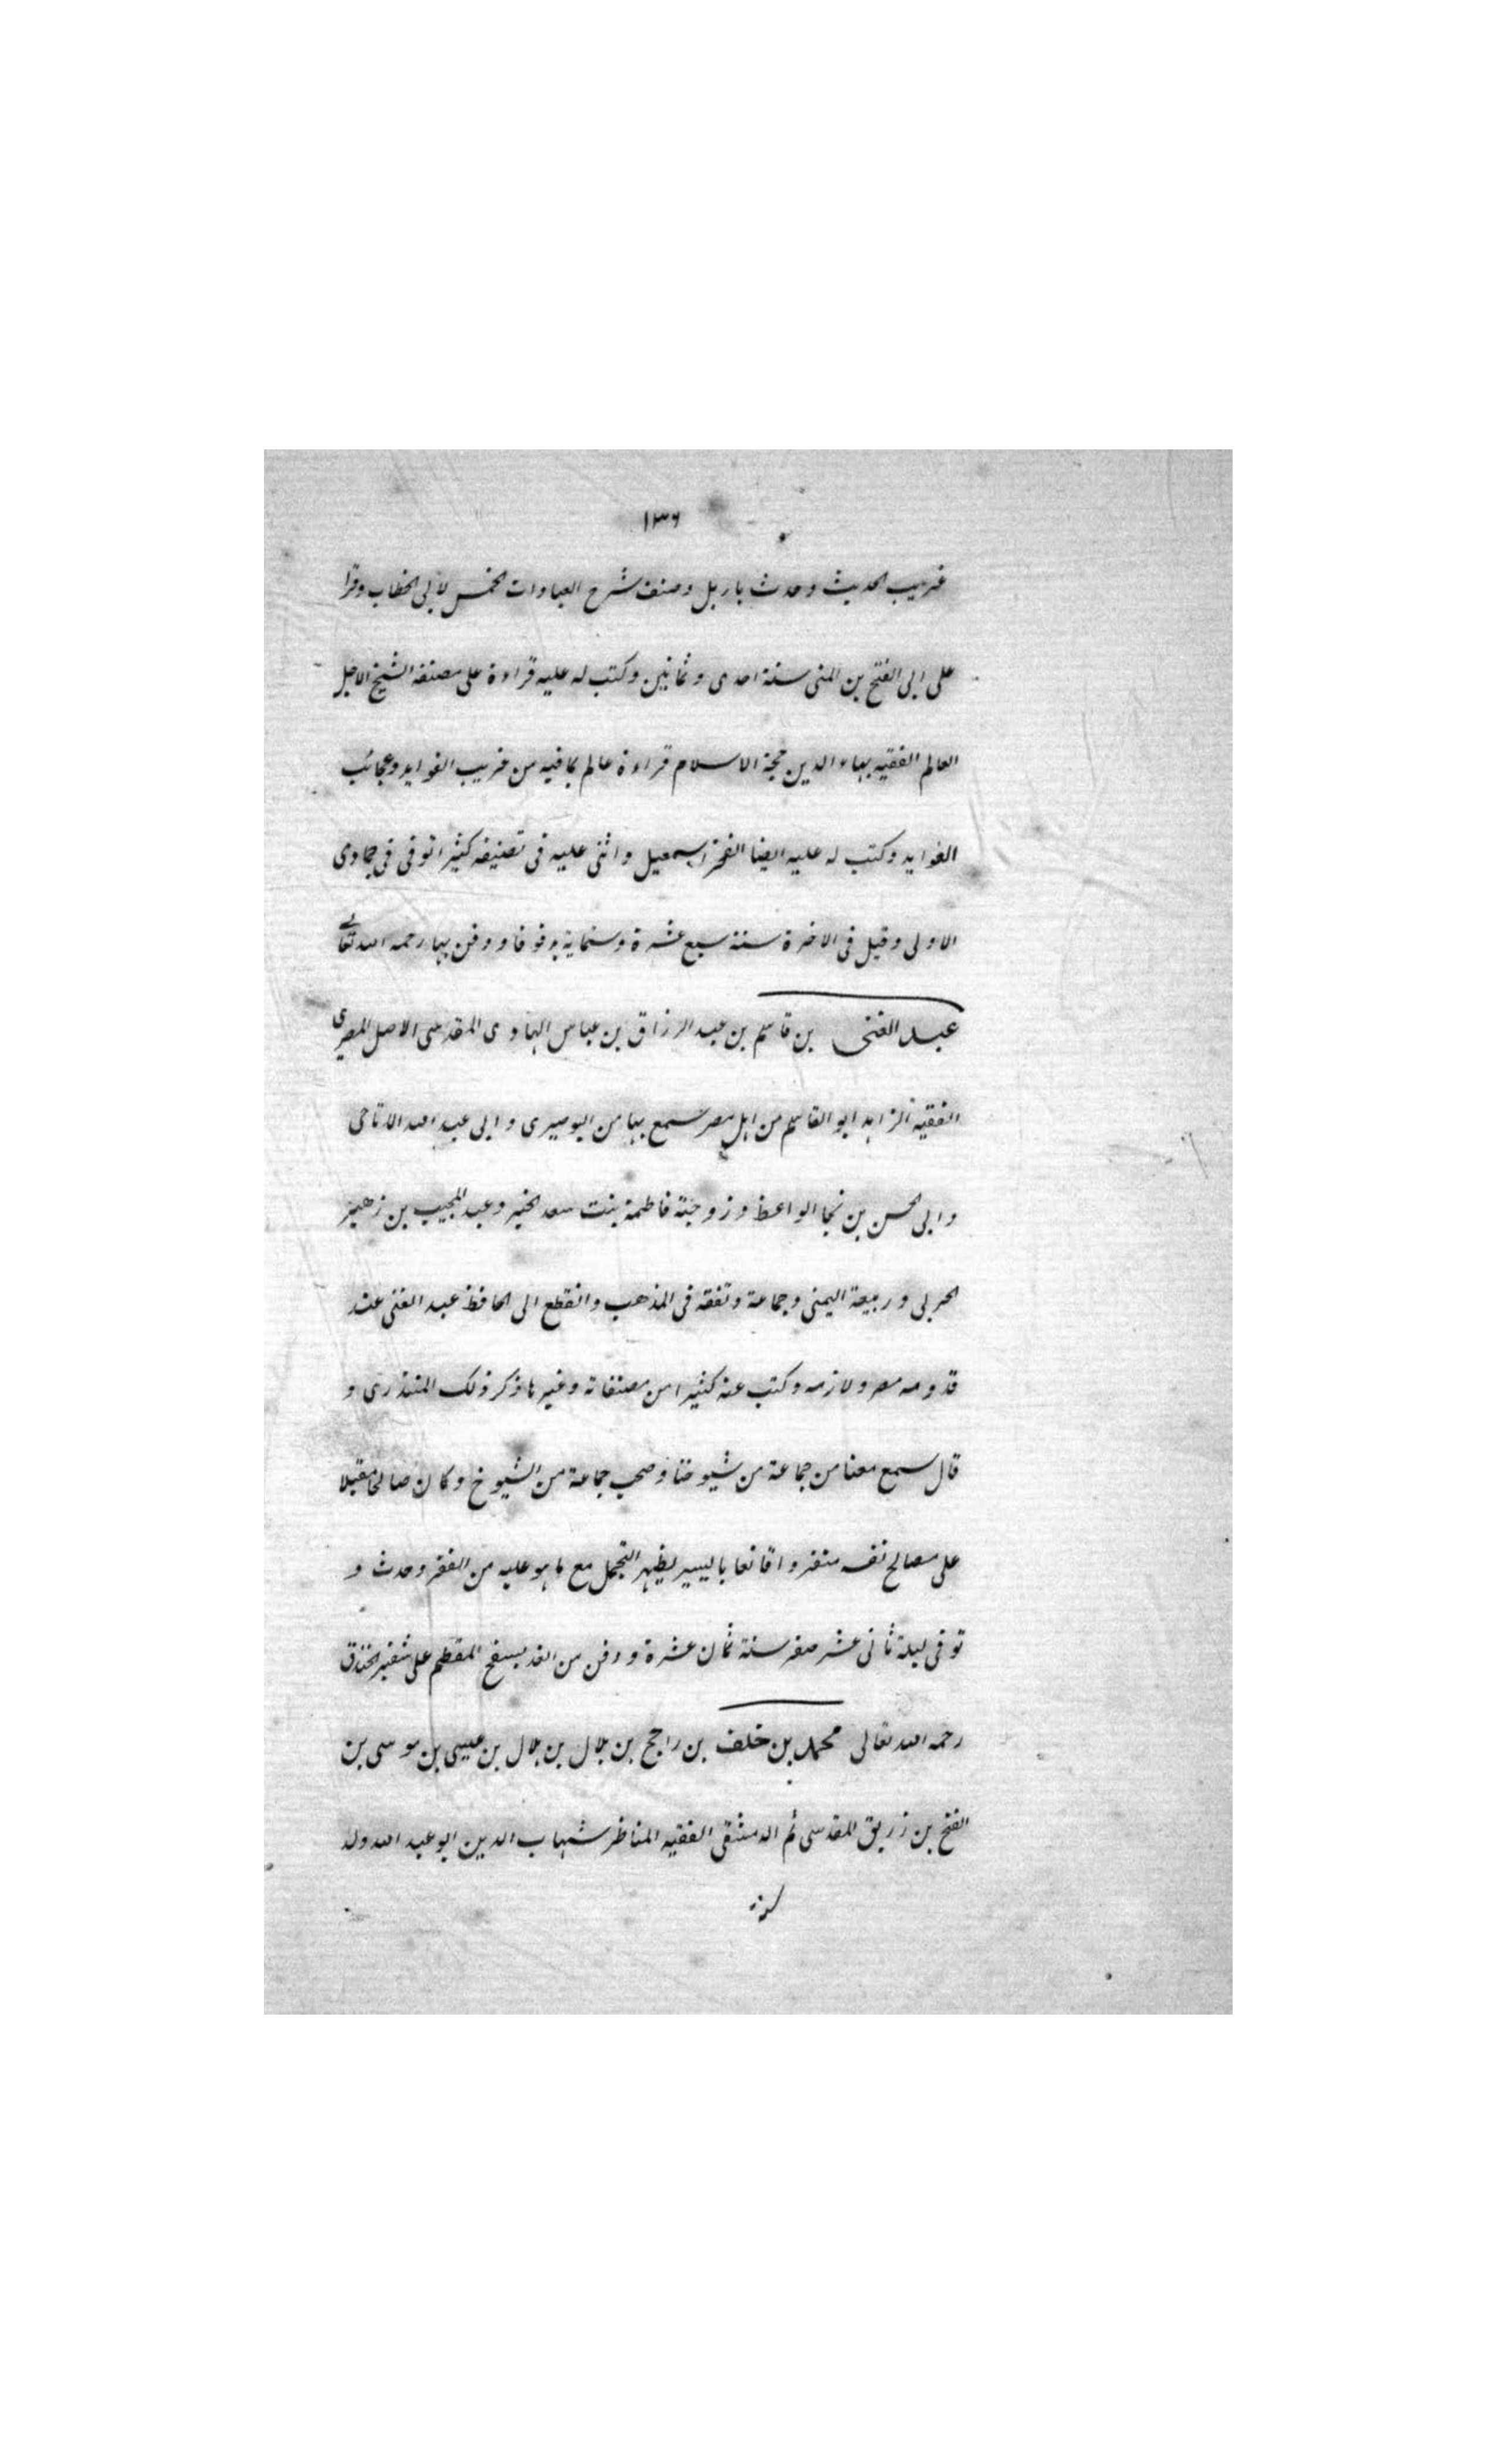 ١٣٦
غريب الحديث وحدث باربل وصنف شرح العبادات الخمس لأبى الخطاب وقرا
على ابى الفتح بن المنى سنة احدى وثمانين وكتب له عليه قراءة على مصنفه الشيخ الاجل
العالم الفقيه بهاء الدين حجة الاسلام قراءة عالم بمافيه من غريب الفوايد وعجائب
الفوايد وكتب له عليه ايضا الفخر اسمعيل واثنى عليه فى تصنيفه كثيرا توفى فى جمادى
الاولى وقيل فى الاخرة سنة سبع عشرة وستماية بدقوقا ودفن بها رحمه الله تعالى
عبد الغنى بن قاسم بن عبد الرزاق بن عباس الهادى المقدسى الاصل المصرى
الفقيه الزاهد ابو القاسم من اهل مصر سمع بها من البوصيرى وابى عبد الله الارتاحى
وابى الحسن بن نجا الواعظ وزوجته فاطمة بنت سعد الخير وعبد المجيب بن زهير
الحربى وربيعة اليمنى وجماعة وتفقه فى المذهب وانقطع الى الحافظ عبد الغنى عند
قدومه مصر ولازمه وكتب عنه كثيرا من مصنفاته وغيرها ذكر ذلك المنذرى و
قال سمع معنا من جماعة من شيوخنا وصحب جماعة من الشيوخ وكان صالحا مقبلا
على مصالح نفسه منفردا قانعا باليسير يظهر التجمل مع ما هو عليه من الفقر وحدث و
توفى ليلة ثانى عشر صفر سنة ثمان عشرة ودفن من الغد بسفح المقطم على شفير الخندق
رحمه الله تعالى محمد بن خلف بن راجح بن بلال بن بلال بن عيسى بن موسى بن
الفتح بن زريق المقدسى ثم الدمشقى الفقيه المناظر شهاب الدين ابو عبد الله ولد
سنة